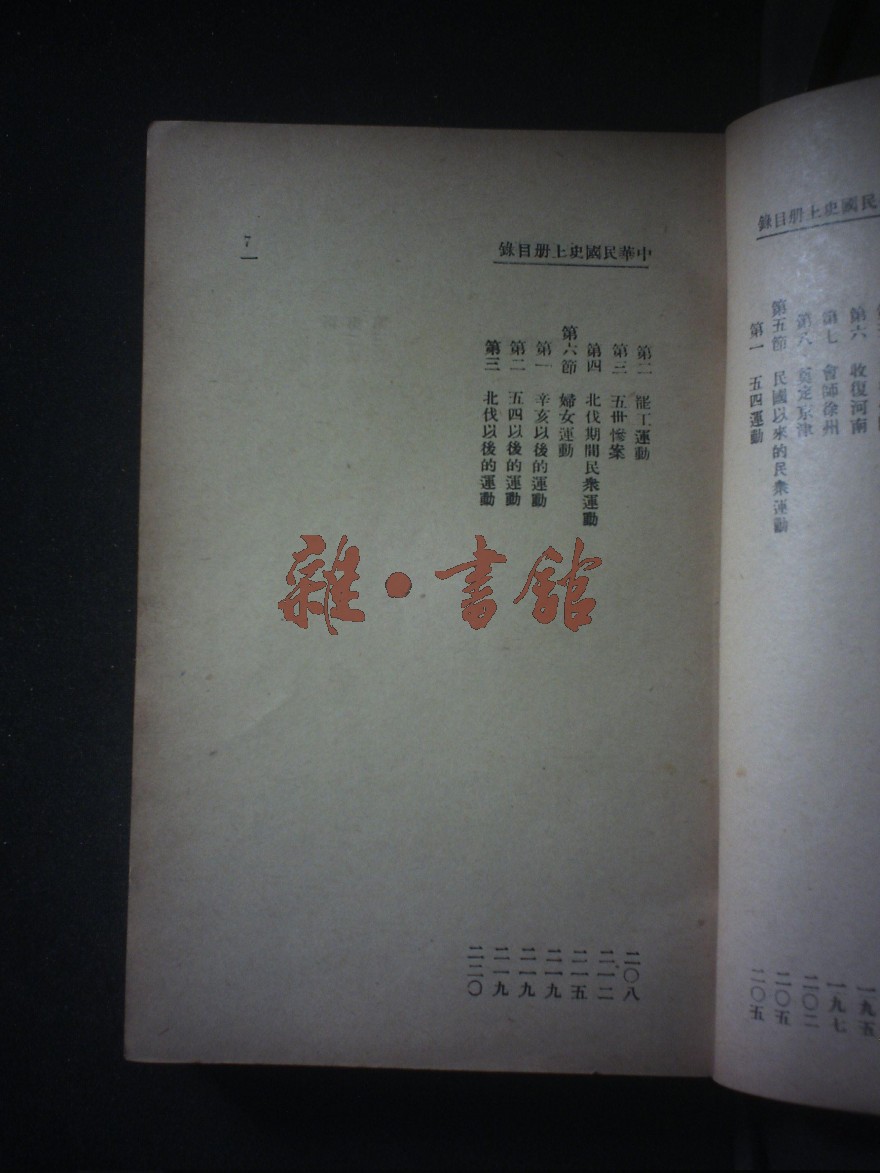 民國史上册目錄
第六 收復河南 一九五
第七 會師徐州 一九七
第八 奠定京津 二〇二
第五節 民國以來的民衆運動 二〇五
第一 五四運動 二〇五
中華民國史上册目錄
第二 罷工運動 二〇八
第三 五卅慘案 二一二
第四 北伐期間民衆運動 二一五
第六節 婦女運動 二一九
第一 辛亥以後的運動 二一九
第二 五四以後的運動 二一九
第三 北伐以後的運動 二二〇
7
雜·書館